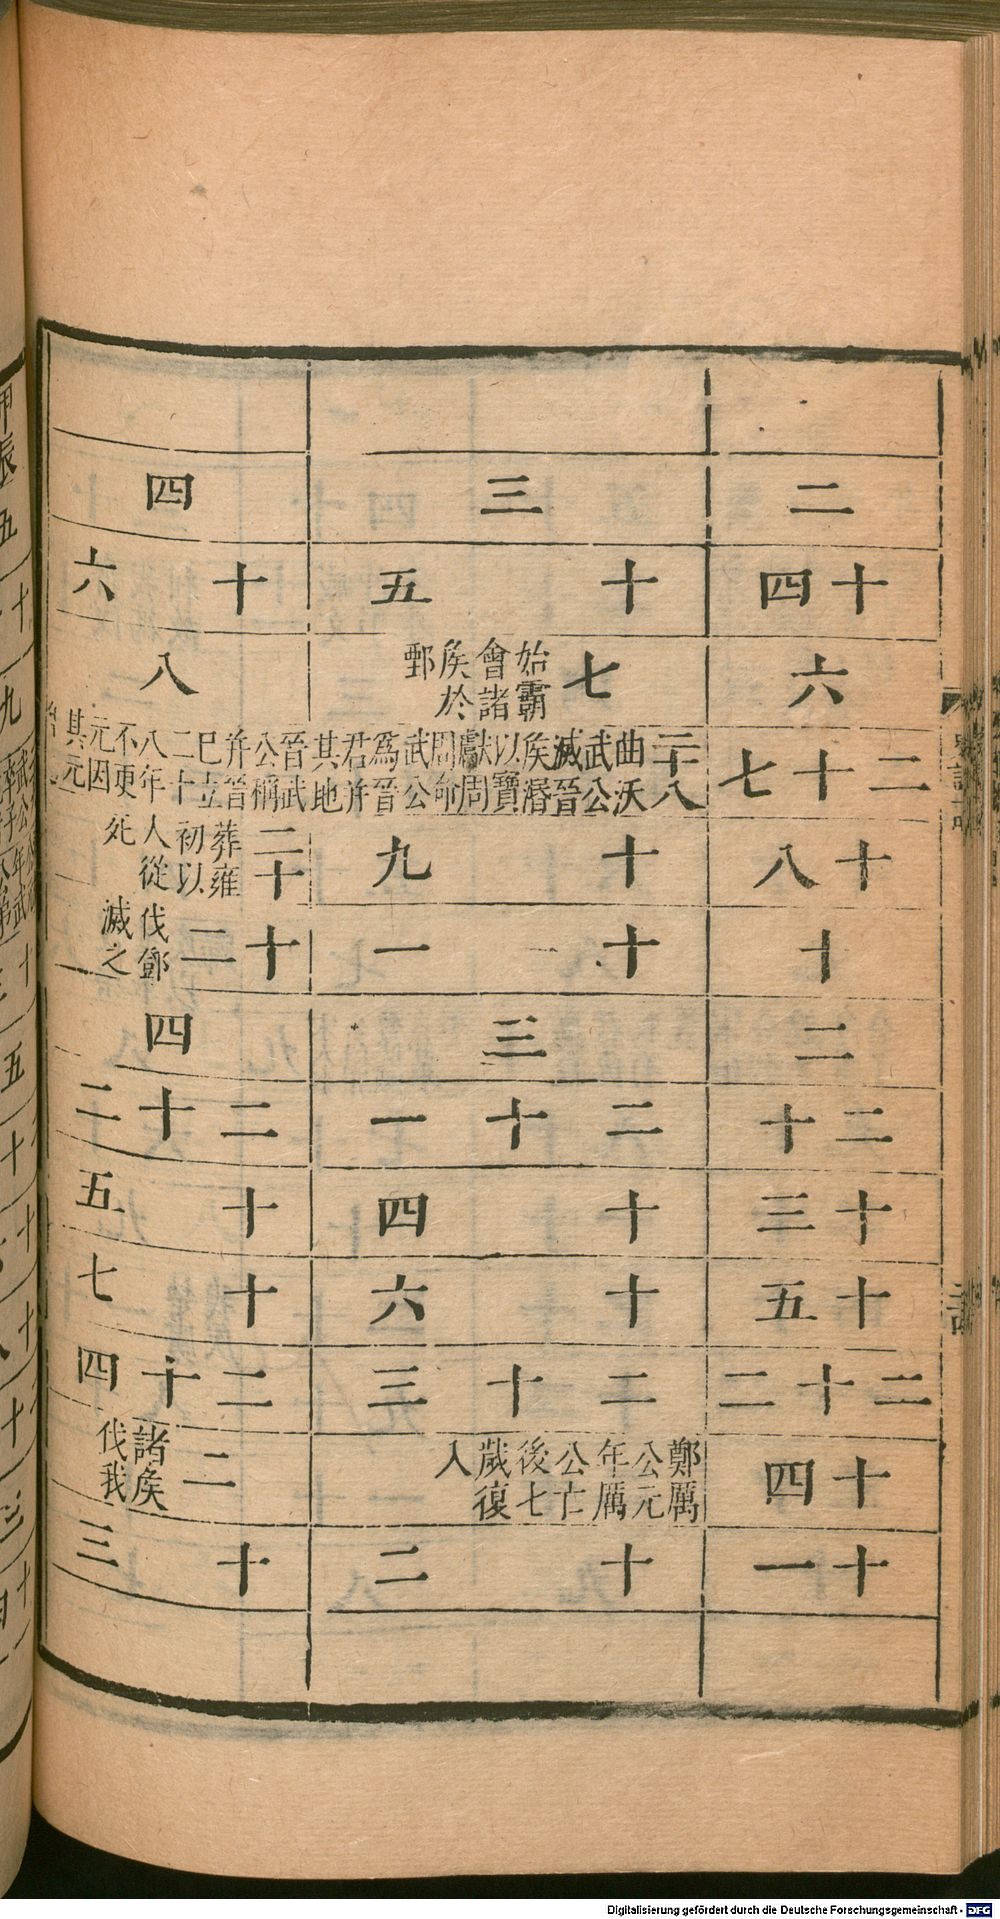 二
十四
六
二十七
十八
十
二
二十
十三
十五
二十二
十四
十一
三
十五
七
始霸
會諸
侯於
鄄
二十八
曲沃
武公
滅晉
侯湣
以寶
獻周
周命
武公
爲晉
君并
其地
十九
十一
三
二十一
十四
十六
二十三
鄭厲
公元
年厲
公亡
後七
歲復
入
十二
四
十六
八
晉武
公稱
并晉
巳立
二十
八年
不更
元因
其元
二十
葬雍
初以
人從
死
十二
伐鄧
滅之
四
二十二
十五
十七
二十四
二
諸侯
伐我
十三
Digitalisierung gefördert durch die Deutsche Forschungsgemeinschaft - DFG